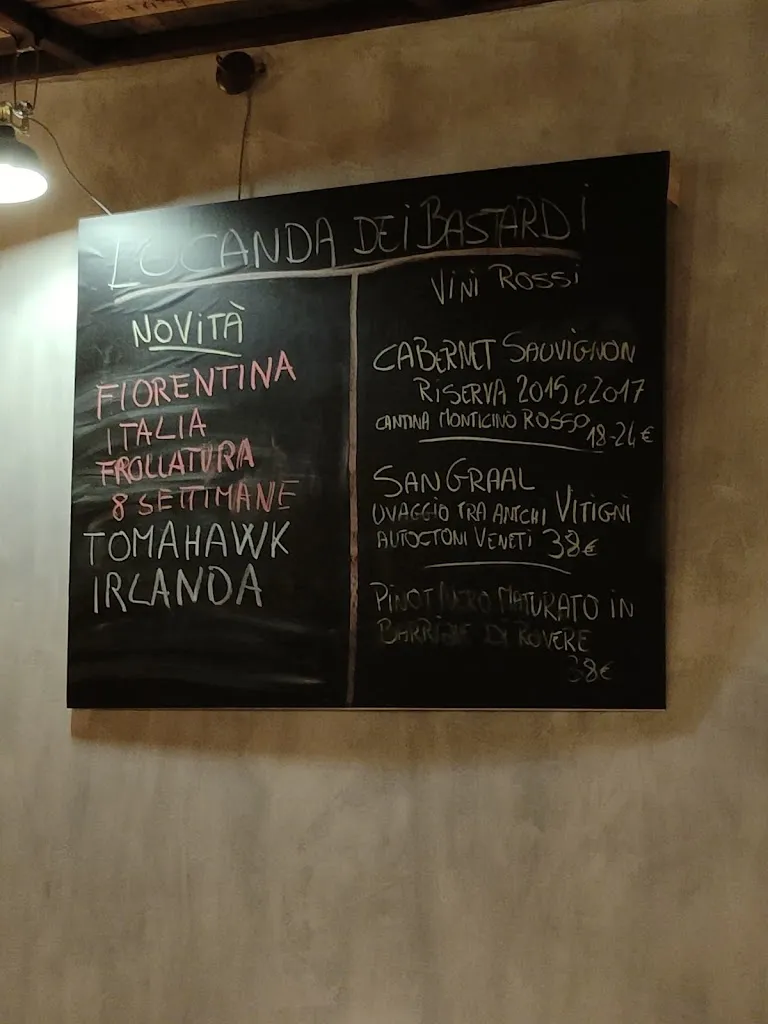 LOCANDA DEI BASTARDI
NOVITÀ
FIORENTINA
ITALIA
FROLLATURA
8 SETTIMANE
TOMAHAWK
IRLANDA
VINI ROSSI
CABERNET SAUVIGNON
RISERVA 2015 e 2017
CANTINA MONTICINO ROSSO
18-24€
SANGRAAL
UVAGGIO TRA ANTICHI VITIGNI
AUTOCTONI VENETI 38€
PINOT NERO MATURATO IN
DI ROVERE
38€